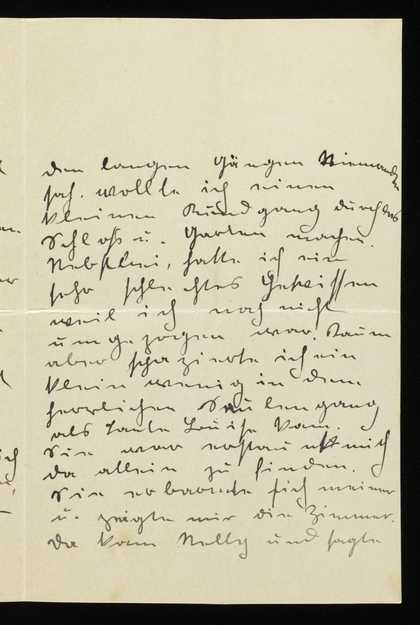 den langen Gängen Niemanden
sah. wollte ich einen
kleinen Rundgang durch das
Schloß u. Garten machen.
Nebstbei, hatte ich ein
sehr schlechtes Gewissen
weil ich noch nicht
umgezogen war. Kaum
aber spazierte ich ein
klein wenig in dem
herrlichen Säulengang
als Tante Louise kam.
Sie war erstaunt mich
da allein zu finden.
Sie erbarmte sich meiner
u. zeigte mir die Zimmer.
Da kam Nelly und sagte